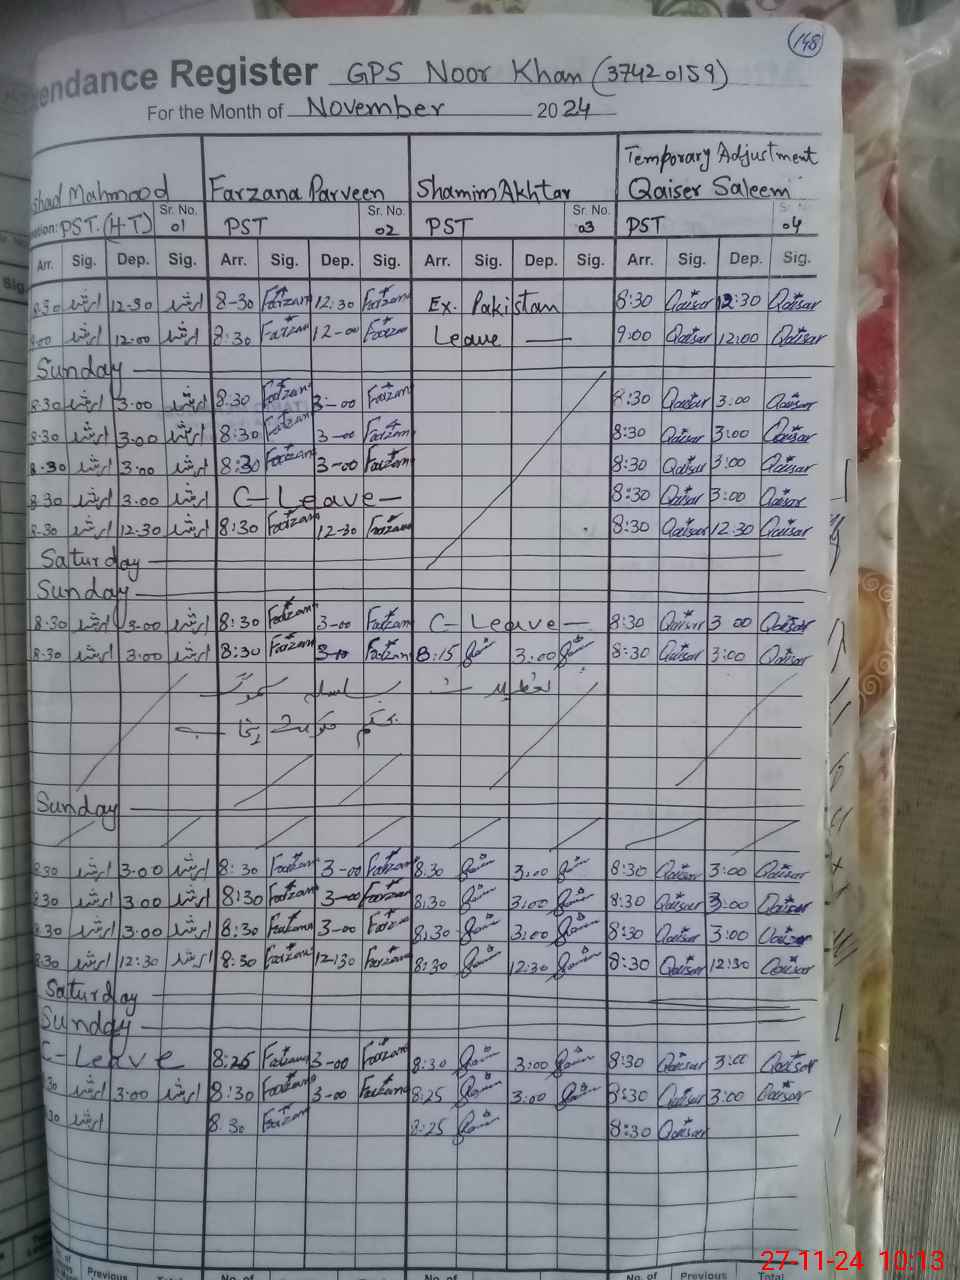 148
endance Register GPS Noor Khan (37420159)
For the Month of November 2024
Temporary Adjustment
shad Mahmood Farzana Parveen Shamim Akhtar Qaiser Saleem
Sr. No. Sr. No. Sr. No. Sr. No.
ation: PST. (H-T) 01 PST 02 PST 03 PST 04
Arr. Sig. Dep. Sig. Arr. Sig. Dep. Sig. Arr. Sig. Dep. Sig. Arr. Sig. Dep. Sig.
8:30 ارشد 12-30 ارشد 8-30 Farzana 12:30 Farzana Ex. Pakistan 8:30 Qaisar 12:30 Qaisar
9:00 ارشد 12:00 ارشد 8:30 Farzana 12-00 Farzana Leave 9:00 Qaisar 12:00 Qaisar
Sunday
8:30 ارشد 3:00 ارشد 8:30 Farzana 3-00 Farzana 8:30 Qaisar 3:00 Qaisar
8:30 ارشد 3:00 ارشد 8:30 Farzana 3-00 Farzana 8:30 Qaisar 3:00 Qaisar
8:30 ارشد 3:00 ارشد 8:30 Farzana 3-00 Farzana 8:30 Qaisar 3:00 Qaisar
8:30 ارشد 3:00 ارشد C-Leave- 8:30 Qaisar 3:00 Qaisar
8:30 ارشد 12:30 ارشد 8:30 Farzana 12-30 Farzana 8:30 Qaisar 12:30 Qaisar
Saturday
Sunday
8:30 ارشد 3:00 ارشد 8:30 Farzana 3-00 Farzana C-Leave- 8:30 Qaisar 3 00 Qaisar
8:30 ارشد 3:00 ارشد 8:30 Farzana Farzana 8:15 3:00 8:30 Qaisar 3:00 Qaisar
تعطیلات بسلسلہ سموگ
بحکم حکومت پنجاب
Sunday
8:30 ارشد 3:00 ارشد 8:30 Farzana 3-00 Farzana 8:30 3:00 8:30 Qaisar 3:00 Qaisar
8:30 ارشد 3:00 ارشد 8:30 Farzana 3-00 Farzana 8:30 3:00 8:30 Qaisar 3:00 Qaisar
8:30 ارشد 3:00 ارشد 8:30 Farzana 3-00 Farzana 8:30 3:00 8:30 Qaisar 3:00 Qaisar
8:30 ارشد 12:30 ارشد 8:30 Farzana 12:30 Farzana 8:30 12:30 8:30 Qaisar 12:30 Qaisar
Saturday
Sunday
C-Leave 8:25 Farzana 3-00 Farzana 8:30 3:00 8:30 Qaisar 3:00 Qaisar
:30 ارشد 3:00 ارشد 8:30 Farzana 3-00 Farzana 8:25 3:00 8:30 Qaisar 3:00 Qaisar
:30 ارشد 8:30 Farzana 8:25 8:30 Qaisar
No. of Previous Total No. of No. of No. of Previous Total
27-11-24 10:13